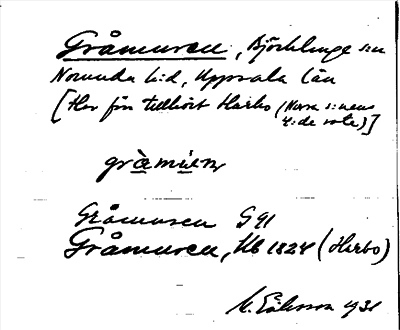 Gråmuren, Björklinge sn
Norunda hd, Uppsala län
[Har förr tillhört Harbo (Nora sn
4:de rote)]
gràmu̇rn
Gråmuren G 91
Gråmuren, Hb 1824 (Harbo)
M. Eriksson 1931